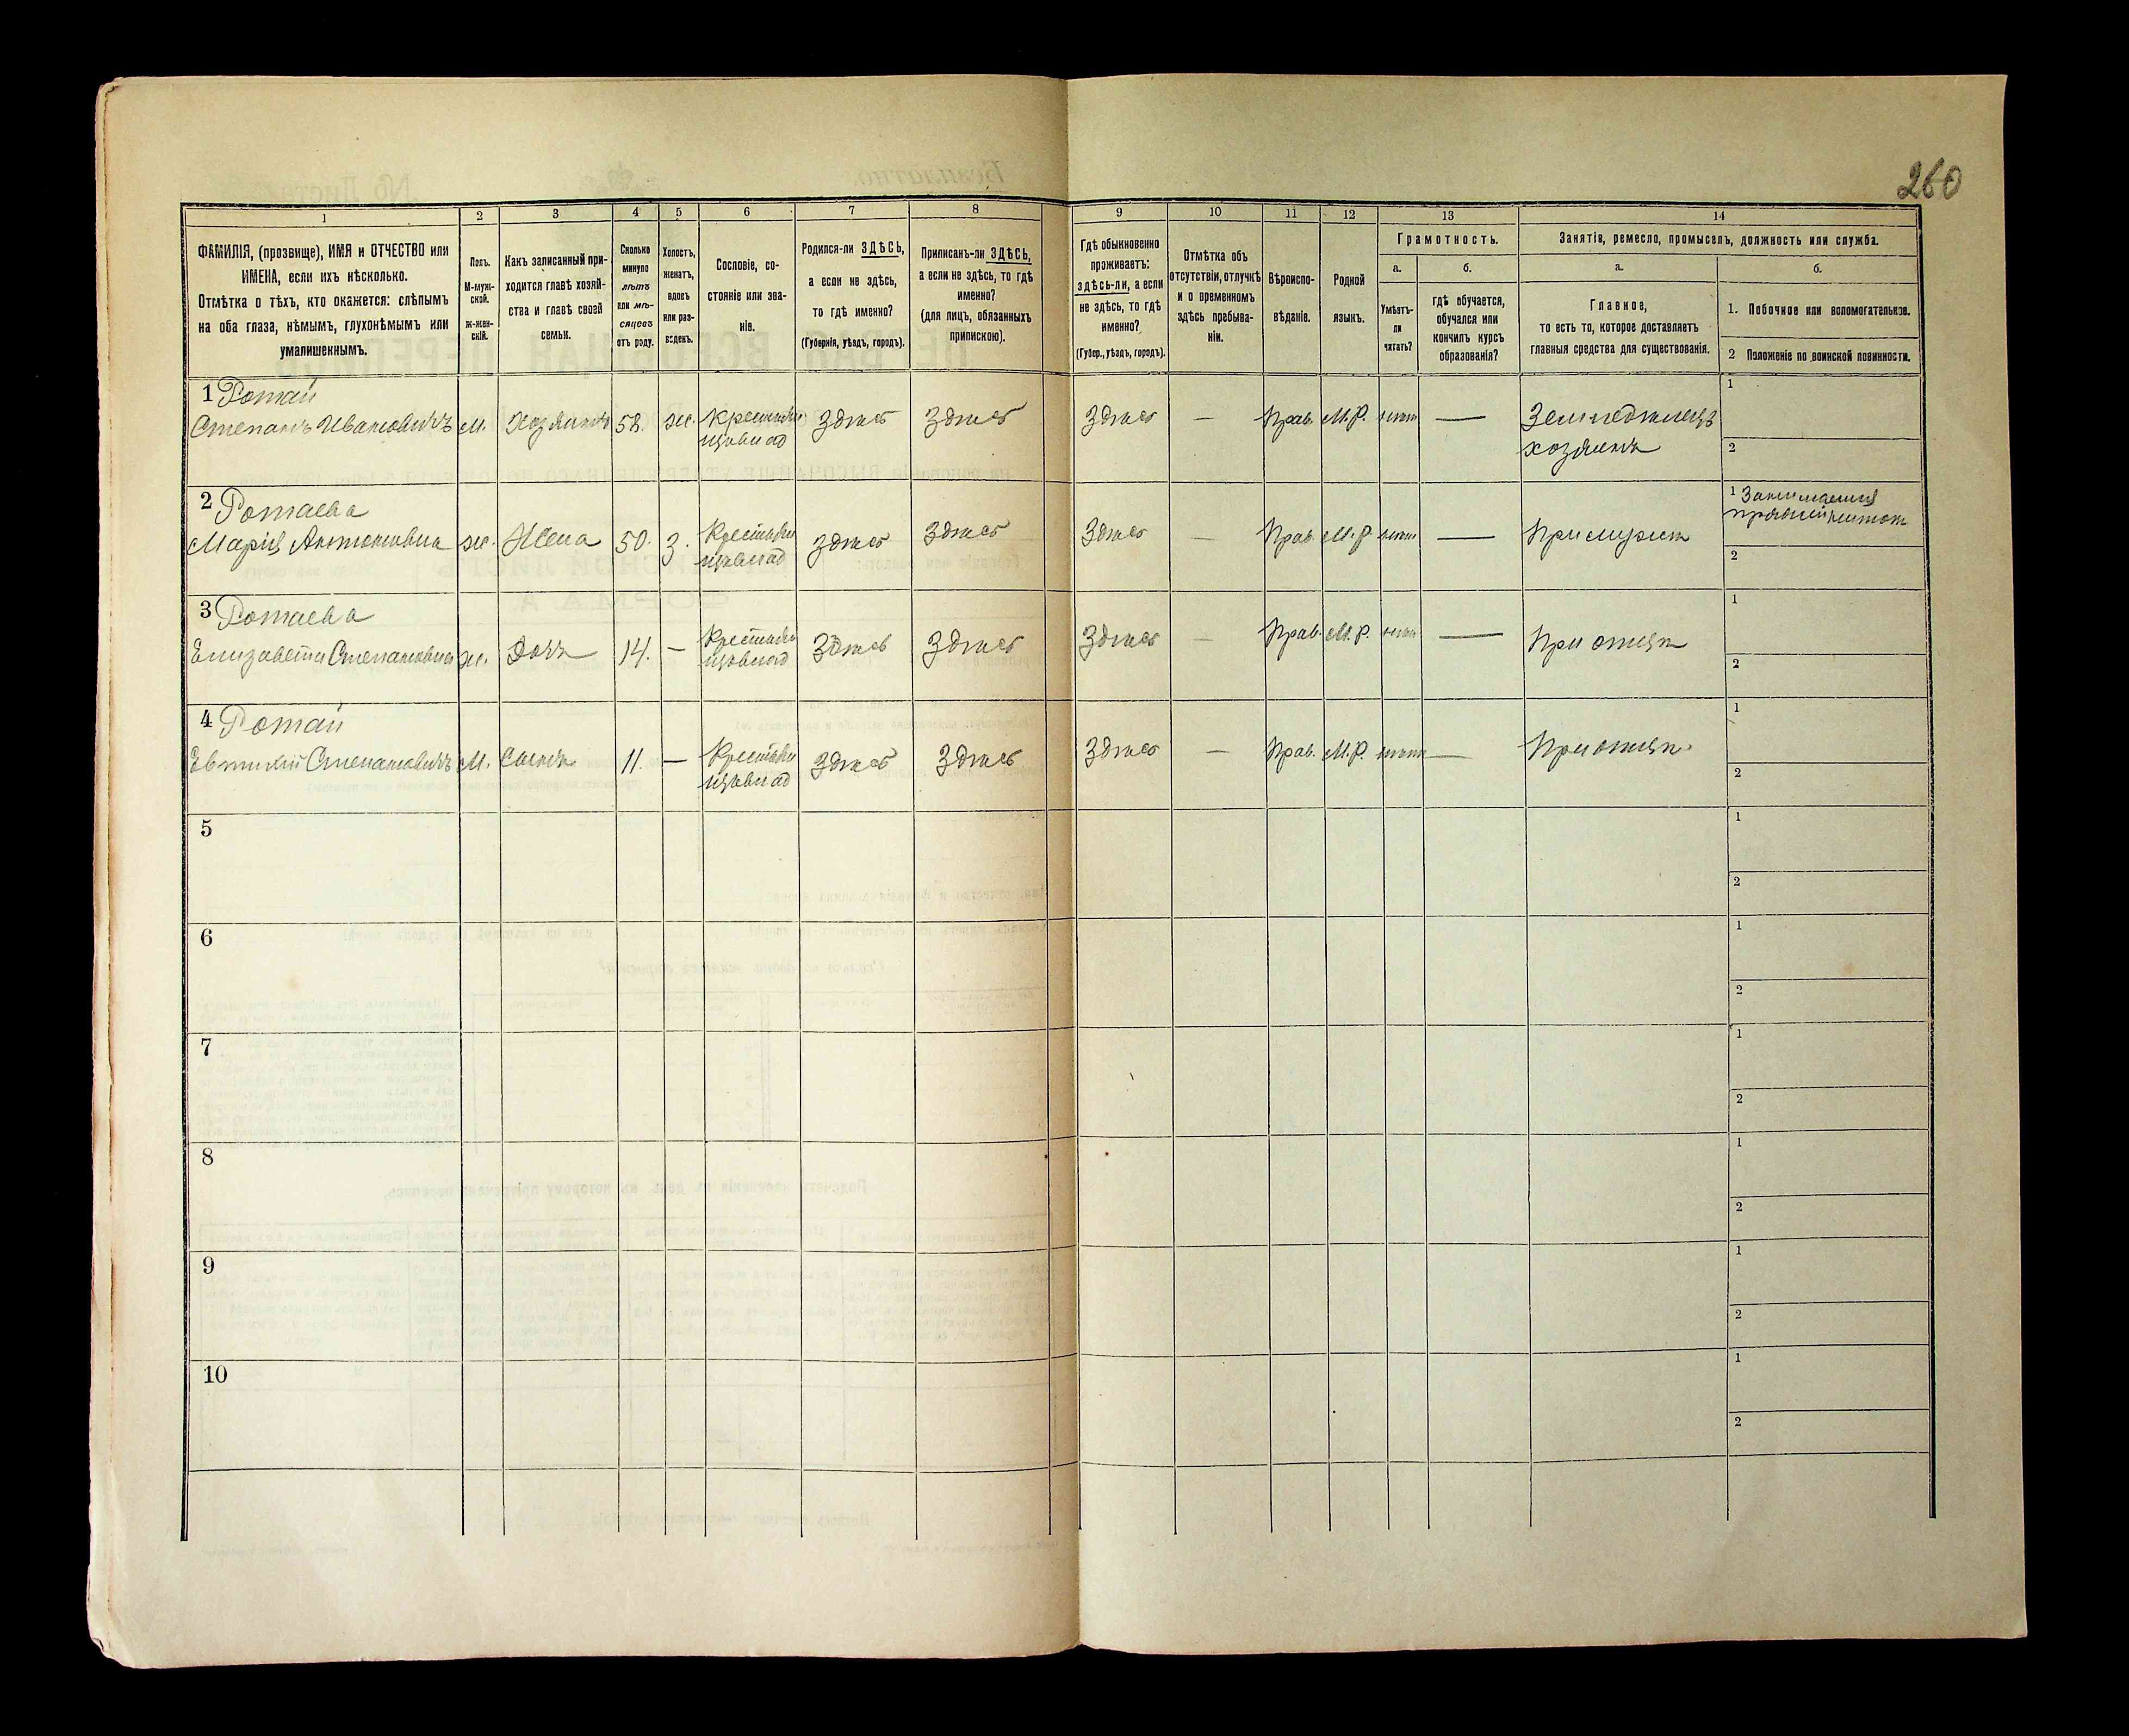 260
1
2
3
4
5
6
7
8
9
10
11
12
13
14
ФАМИЛІЯ, (прозвище), ИМЯ и ОТЧЕСТВО или
ИМЕНА, если ихъ нѣсколько.
Отмѣтка о тѣхъ, кто окажется: слѣпымъ
на оба глаза, нѣмымъ, глухонѣмымъ или
умалишеннымъ.
Полъ.
М-муж-
ской.
ж-жен-
скій.
Какъ записанный при-
ходится главѣ хозяй-
ства и главѣ своей
семьи.
Сколько
минуло
лѣтъ
или мѣ-
сяцевъ
отъ роду.
Холостъ,
женатъ,
вдовъ
или раз-
веденъ.
Сословіе, со-
стояніе или зва-
ніе.
Родился-ли ЗДѢСЬ,
а если не здѣсь,
то гдѣ именно?
(Губернія, уѣздъ, городъ).
Приписанъ-ли ЗДѢСЬ,
а если не здѣсь, то гдѣ
именно?
(для лицъ, обязанныхъ
припискою).
Гдѣ обыкновенно
проживаетъ:
здѣсь-ли, а если
не здѣсь, то гдѣ
именно?
(Губер., уѣздъ, городъ).
Отмѣтка объ
отсутствіи, отлучкѣ
и о временномъ
здѣсь пребыва-
ніи.
Вѣроиспо-
вѣданіе.
Родной
языкъ.
Грамотность.
а.
Умѣетъ-
ли
читать?
б.
гдѣ обучается,
обучался или
кончилъ курсъ
образованія?
Занятія, ремесло, промыселъ, должность или служба.
а.
Главное,
то есть то, которое доставляетъ
главныя средства для существованія.
б.
1. Побочное или вспомогательное.
2 Положеніе по воинской повинности.
1 Ротай
Степанъ Ивановичъ М. Хозяинъ 58. ж. Крестьян здѣсь здѣсь здѣсь — Прав. М.Р. нѣтъ — Земледѣлецъ
хозяинъ
1
2
2 Ротаева
Марія Антоновна ж. Жена 50. З. Крестьян здѣсь здѣсь здѣсь — Прав. М.Р. нѣтъ — При мужѣ
1 Занимается
2
3 Ротаева
Елизавета Степановна ж. Дочь 14. — Крестьян здѣсь здѣсь здѣсь — Прав. М.Р. нѣтъ — При отцѣ
1
2
4 Ротай
Евтихій Степановичъ М. Сынъ 11. — Крестьян здѣсь здѣсь здѣсь — Прав. М.Р. нѣтъ — При отцѣ
1
2
5
1
2
6
1
2
7
1
2
8
1
2
9
1
2
10
1
2